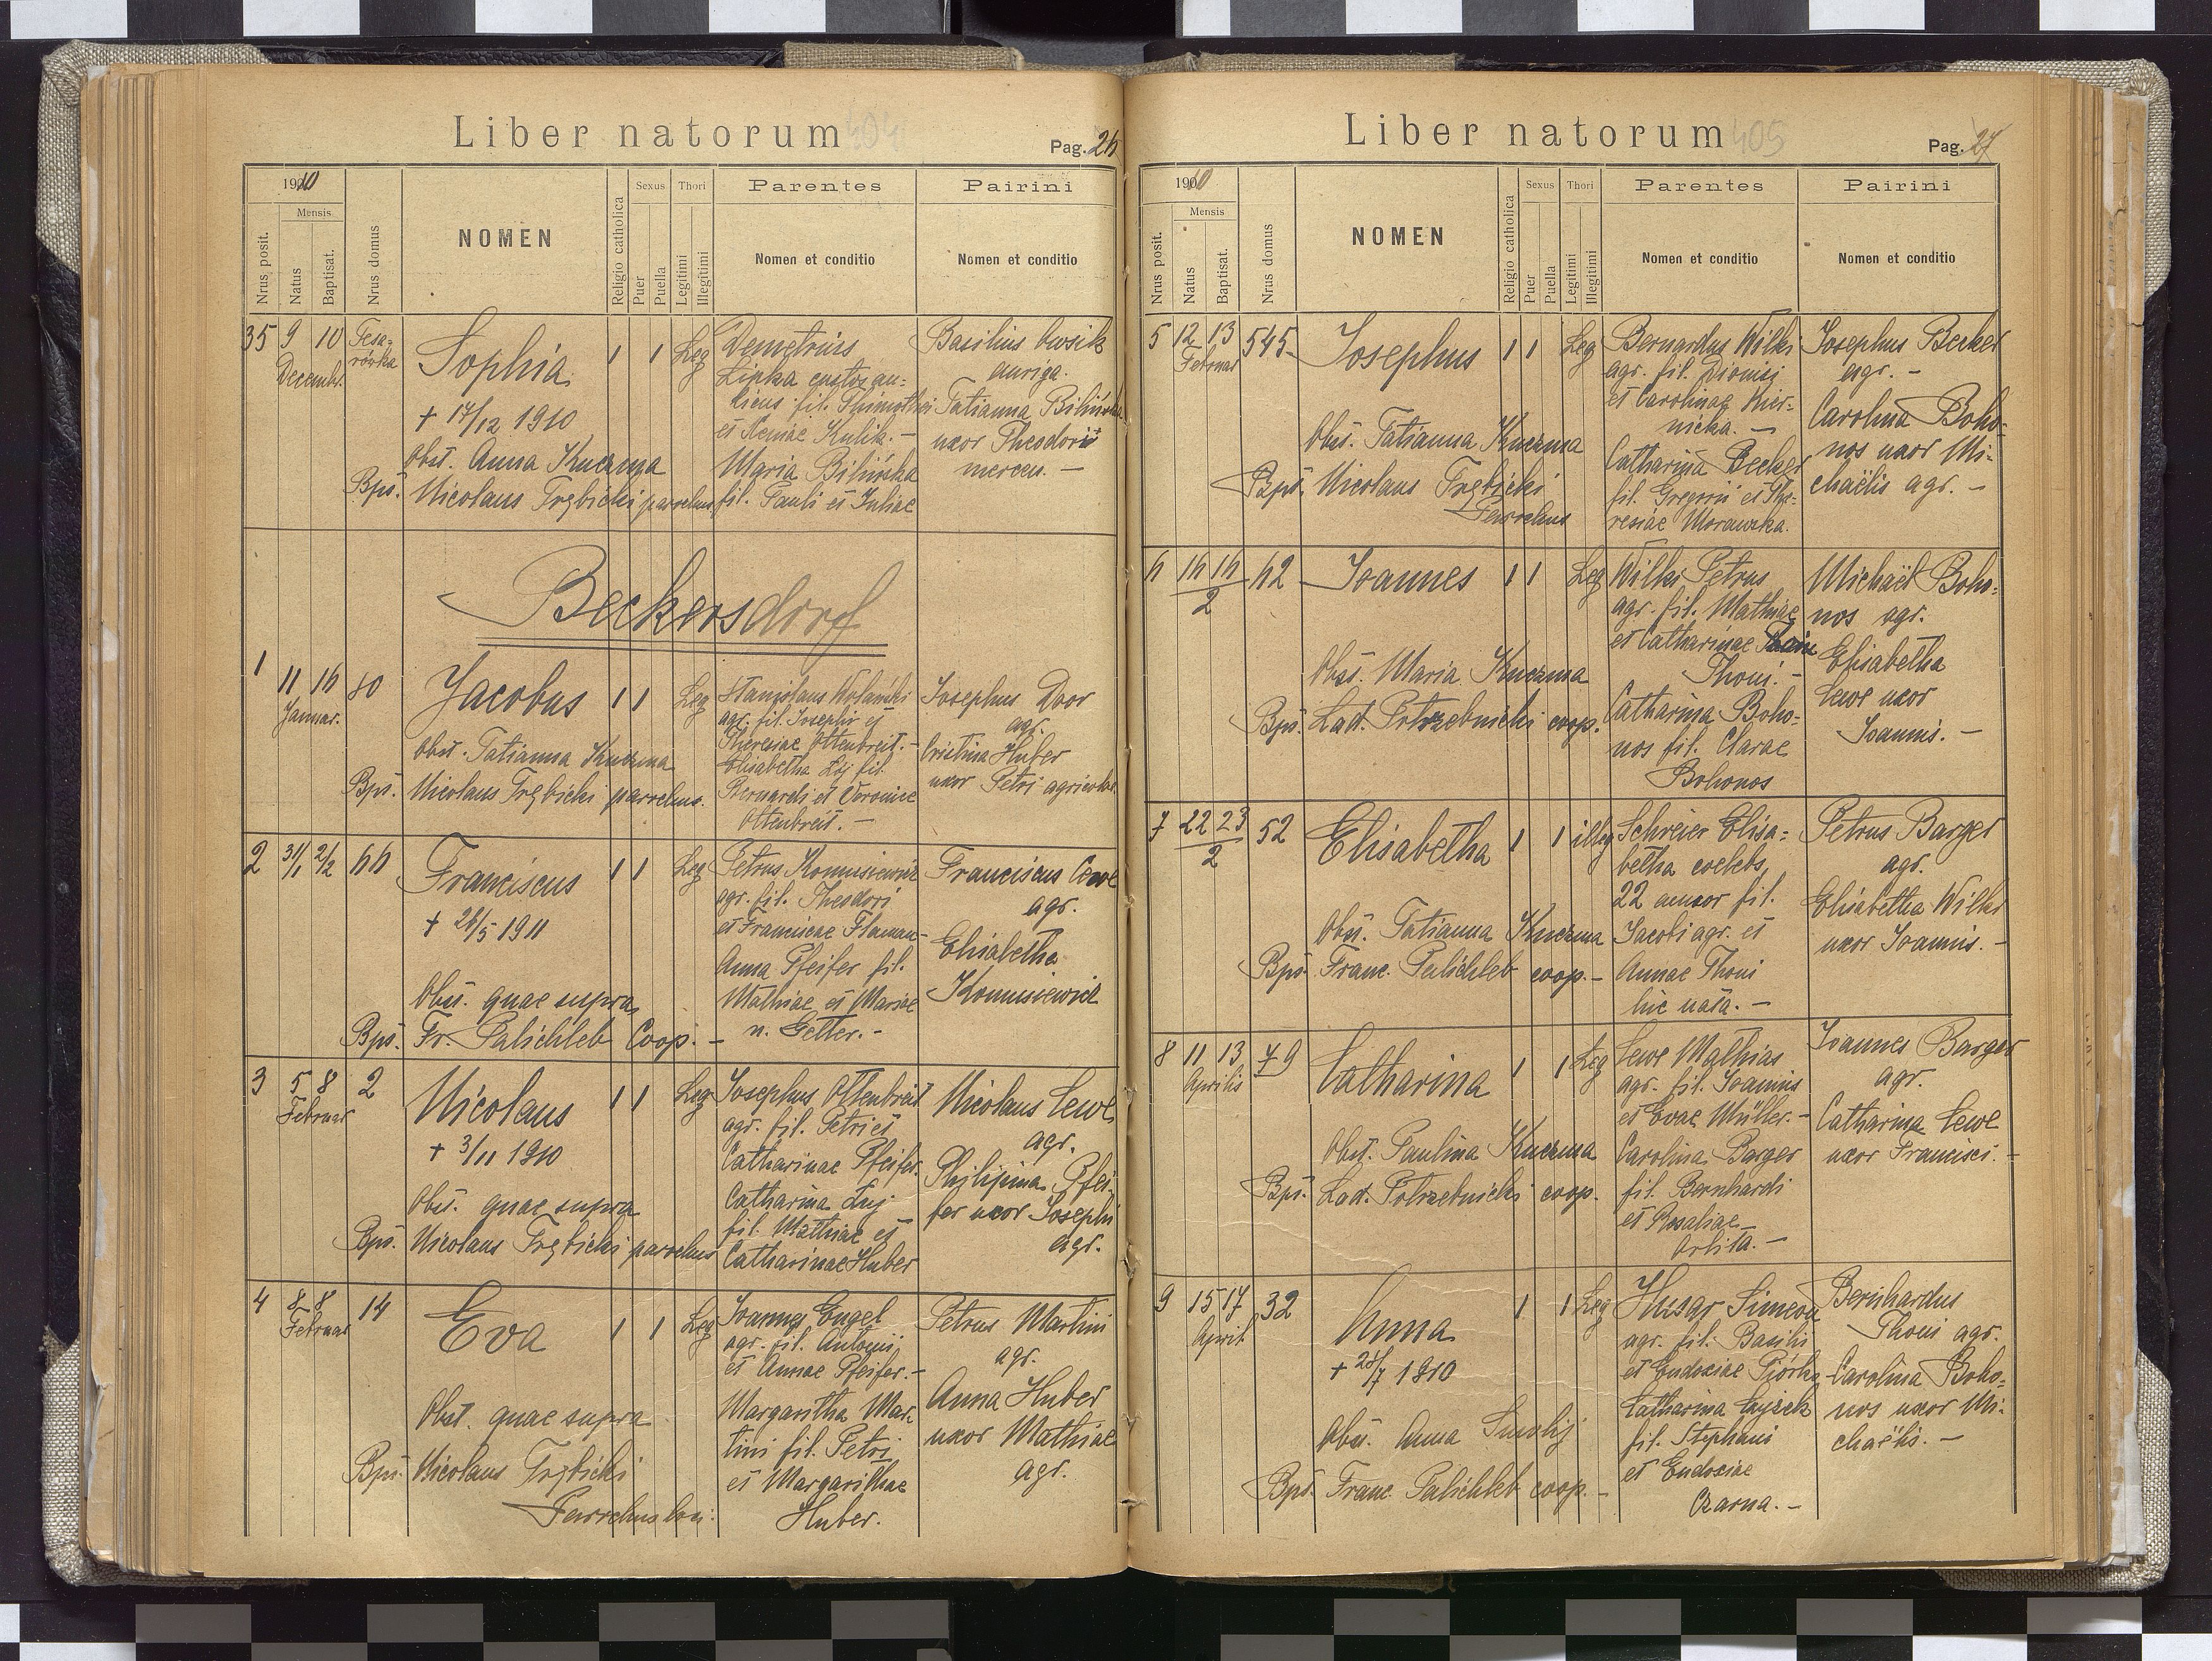 Liber natorum 404
Pag. 26
1910
Nrus posit.
Mensis
Natus
Baptisat.
Nrus domus
NOMEN
Religio catholica
Sexus
Puer
Puella
Thori
Legitimi
Illegitimi
Parentes
Nomen et conditio
Pairini
Nomen et conditio
35 9 10 Decembr.
Sophia 1 1 Leg
+ 17/12 1910
Obst. Anna Kuczma
Bps. Nicolaus Trębicki parochus
Demetrius
Lipka custos au-
licus fil. Thimothei
et Xeniae Kulik. -
Maria Bilińska
fil. Pauli et Juliae
Basilius Owsik
auriga.
Tatianna Bilińska
uxor Theodori
mercen. -
Beckersdorf
1 11 16 Januar. 80
Jacobus 1 1 Leg
Obst. Tatianna Kuczma
Bps. Nicolaus Trębicki parochus.
Stanislaus Wolański
agr. fil. Josephi et
Theresiae Ottenbreit. -
Elisabetha Luj fil.
Bernardi et Veronice
Ottenbreit. -
Josephus Door
agr.
Cristina Huber
uxor Petri agricolae
2 31/1 2/2 66
Franciscus 1 1 Leg
+ 26/5 1911
Obst. quae supra
Bps. Fr. Palichleb Coop. -
Petrus Komusiewicz
agr. fil. Theodori
et Franciscae Flaman-
Anna Pfeifer fil.
Mathiae et Mariae
n. Getter. -
Franciscus Lewe
agr.
Elisabetha
Komusiewicz
3 5 8 Februar 2
Nicolaus 1 1 Leg
+ 3/11 1910
Obst. quae supra
Bps. Nicolaus Trębicki parochus
Josephus Ottenbreit
agr. fil. Petri et
Catharinae Pfeifer.
Catharina Luj
fil. Mathiae et
Catharinae Huber
Nicolaus Lewe
agr.
Philipina Pfei-
fer uxor Josephi
agr.
4 8 8 Februar 14
Eva 1 1 Leg
Obst. quae supra
Bps. Nicolaus Trębicki
Parochus loci.
Joannes Engel
agr. fil. Antonii
et Annae Pfeifer. -
Margaritha Mar-
tini fil. Petri
et Margarithae
Huber.
Petrus Martini
agr.
Anna Huber
uxor Mathiae
agr.
Liber natorum 405
Pag. 27
1910
Nrus posit.
Mensis
Natus
Baptisat.
Nrus domus
NOMEN
Religio catholica
Sexus
Puer
Puella
Thori
Legitimi
Illegitimi
Parentes
Nomen et conditio
Pairini
Nomen et conditio
5 12 13 Februar 545
Josephus 1 1 Leg
Obst. Tatianna Kuczma
Bps. Nicolaus Trębicki
Parochus
Bernardus Wilki
agr. fil. Dionisi
et Carolinae Kier-
nicka. -
Catharina Becker
fil. Gregorii et The-
resiae Morawska.
Josephus Becker
agr. -
Carolina Boho-
nos uxor Mi-
chaëlis agr. -
6 16 16 2 62
Joannes 1 1 Leg
Obst. Maria Kuczma
Bps. Lad. Potrzebnicki coop.
Wilki Petrus
agr. fil. Mathiae
et Catharinae
Thoni. -
Catharina Boho-
nos fil. Clarae
Bohonos
Michaël Boho-
nos agr.
Elisabetha
Lewe uxor
Joannis. -
7 22 23 2 52
Elisabetha 1 1 illeg
Obst. Tatianna Kuczma
Bps. Franc. Palichleb coop. -
Schreier Elisa-
betha coelebs,
22 annor fil.
Jacobi agr. et
Annae Thoni
hic nata. -
Petrus Barger
agr.
Elisabetha Wilki
uxor Joannis. -
8 11 13 Aprilis 79
Catharina 1 1 Leg
Obst. Paulina Kuczma
Bps. Lad. Potrzebnicki coop.
Lewe Mathias
agr. fil. Joannis
et Evae Müller. -
Carolina Barger
fil. Bernhardi
et Rosaliae
Orlita. -
Joannes Barger
agr.
Catharina Lewe
uxor Francisci. -
9 15 17 April 32
Anna 1 1 Leg
+ 28/7 1910
Obst. Anna Smolij
Bps. Franc. Palichleb coop. -
Husar Simeon
agr. fil. Basilii
et Eudociae
Catharina
fil. Stephani
et Eudociae
Czarna. -
Bernhardus
Thoni agr.
Carolina Boho-
nos uxor Mi-
chaëlis. -